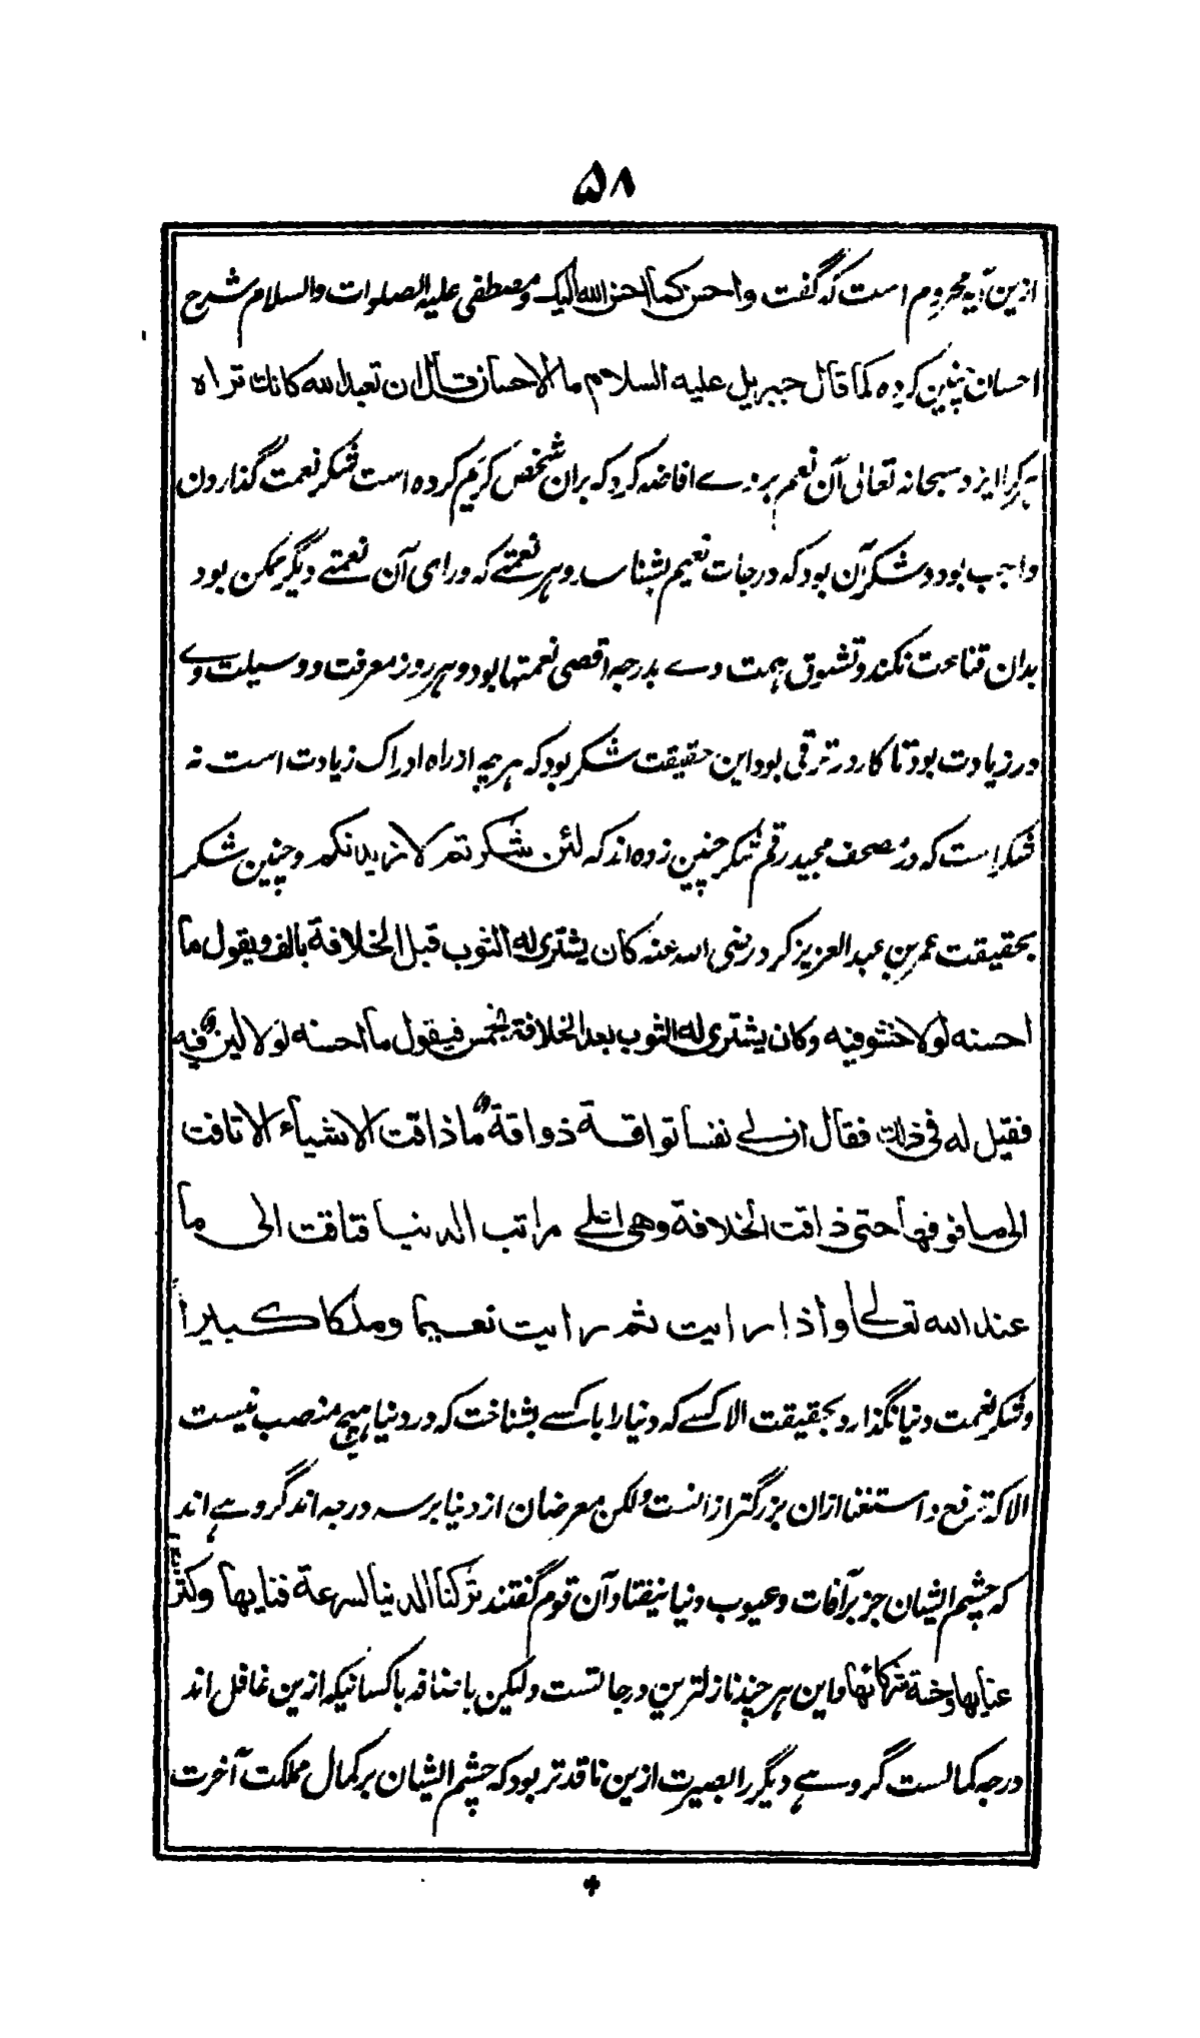 ۵۸
ازین آیه محروم است که گفت واحسن کما احسن الله الیک و مصطفی علیه الصلوات والسلام شرح
احسان چنین کرده کما قال جبریل علیه السلام ما الاحسان قال ان تعبد الله کانک تراه
هرکرا ایزد سبحانه تعالی آن نعم بروے افاضه کرد که بران شخص کریم کرده است شکر نعمت گذارون
واجب بود و شکر آن بود که درجات نعیم بشناسد و هر نعمتے که ورای آن نعمتے دیگر ممکن بود
بدان قناعت نکند و تشوق همت وے بدرجه اقصی نعمتها بود و هر روز معرفت و وسیلت وے
در زیادت بود تا کار در ترقی بود این حقیقت شکر بود که هرچه از راه ادراک زیادت است نه
شکر است که در مصحف مجید رقم شکر چنین زده اند که لئن شکرتم لازیدنکم و چنین شکر
بحقیقت عمر بن عبد العزیز کرد رضی الله عنه کان یشتری له الثوب قبل الخلافة بالف و یقول ما
احسنه لولا خشوفیه وکان یشتری له الثوب بعد الخلافة بخمس فیقول ما احسنه لولا لین فیه
فقیل له فی ذلک فقال ان لے نفسا تواقة ذواقة ما ذاقت الاشیاء الا تاقت
الی ما فوقها حتی ذاقت الخلافة وهی اعلے مراتب الدنیا فتاقت الی ما
عند الله تعالی واذا رایت ثم رایت نعیما وملکا کبیرا
و شکر نعمت دنیا نگذارد بحقیقت الا کسے که دنیا را با کسے بشناخت که در دنیا هیچ منصب نیست
الا که ترفع و استغنا ازان بزرگتر ازانست ولکن معرضان از دنیا بر سه درجه اند گروهے اند
که چشم ایشان جز بر آفات و عیوب دنیا نیفتاد آن قوم گفتند ترکنا الدنیا لسرعة فنایها وکثرة
عنایها وخسة شرکائها و این هر چند نازلترین درجاتست ولیکن باضافه با کسانیکه ازین غافل اند
درجه کمالست گروهے دیگر را بصیرت ازین ناقدتر بود که چشم ایشان بر کمال مملکت آخرت